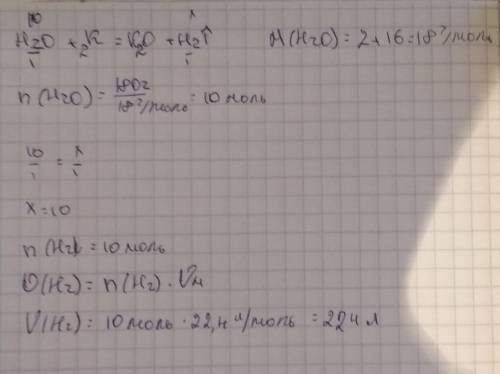 10 x
H2O + 2K = K2O + H2↑ M(H2O) = 2+16=18 г/моль
1 1
n(H2O) = 180г/18 г/моль = 10 моль
10/1 = x/1
x=10
n(H2) = 10 моль
V(H2) = n(H2) · Vм
V(H2) = 10 моль · 22,4 л/моль = 224 л